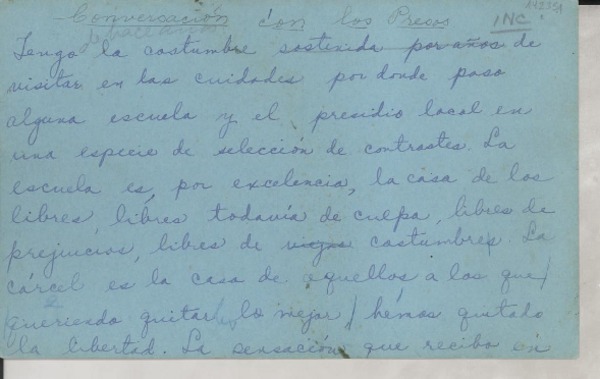 Conversación con los Presos INC.
de hace años
Tengo la costumbre sostenida por años de
visitar en las cuidades por donde paso
alguna escuela y el presidio local en
una especie de selección de contrastes. La
escuela es, por excelencia, la casa de los
libres, libres todavía de culpa, libres de
prejuicios, libres de viejas costumbres. La
cárcel es la casa de aquellos a los que
queriendo quitar lo mejor / hémos quitado
la libertad. La sensación que recibo en